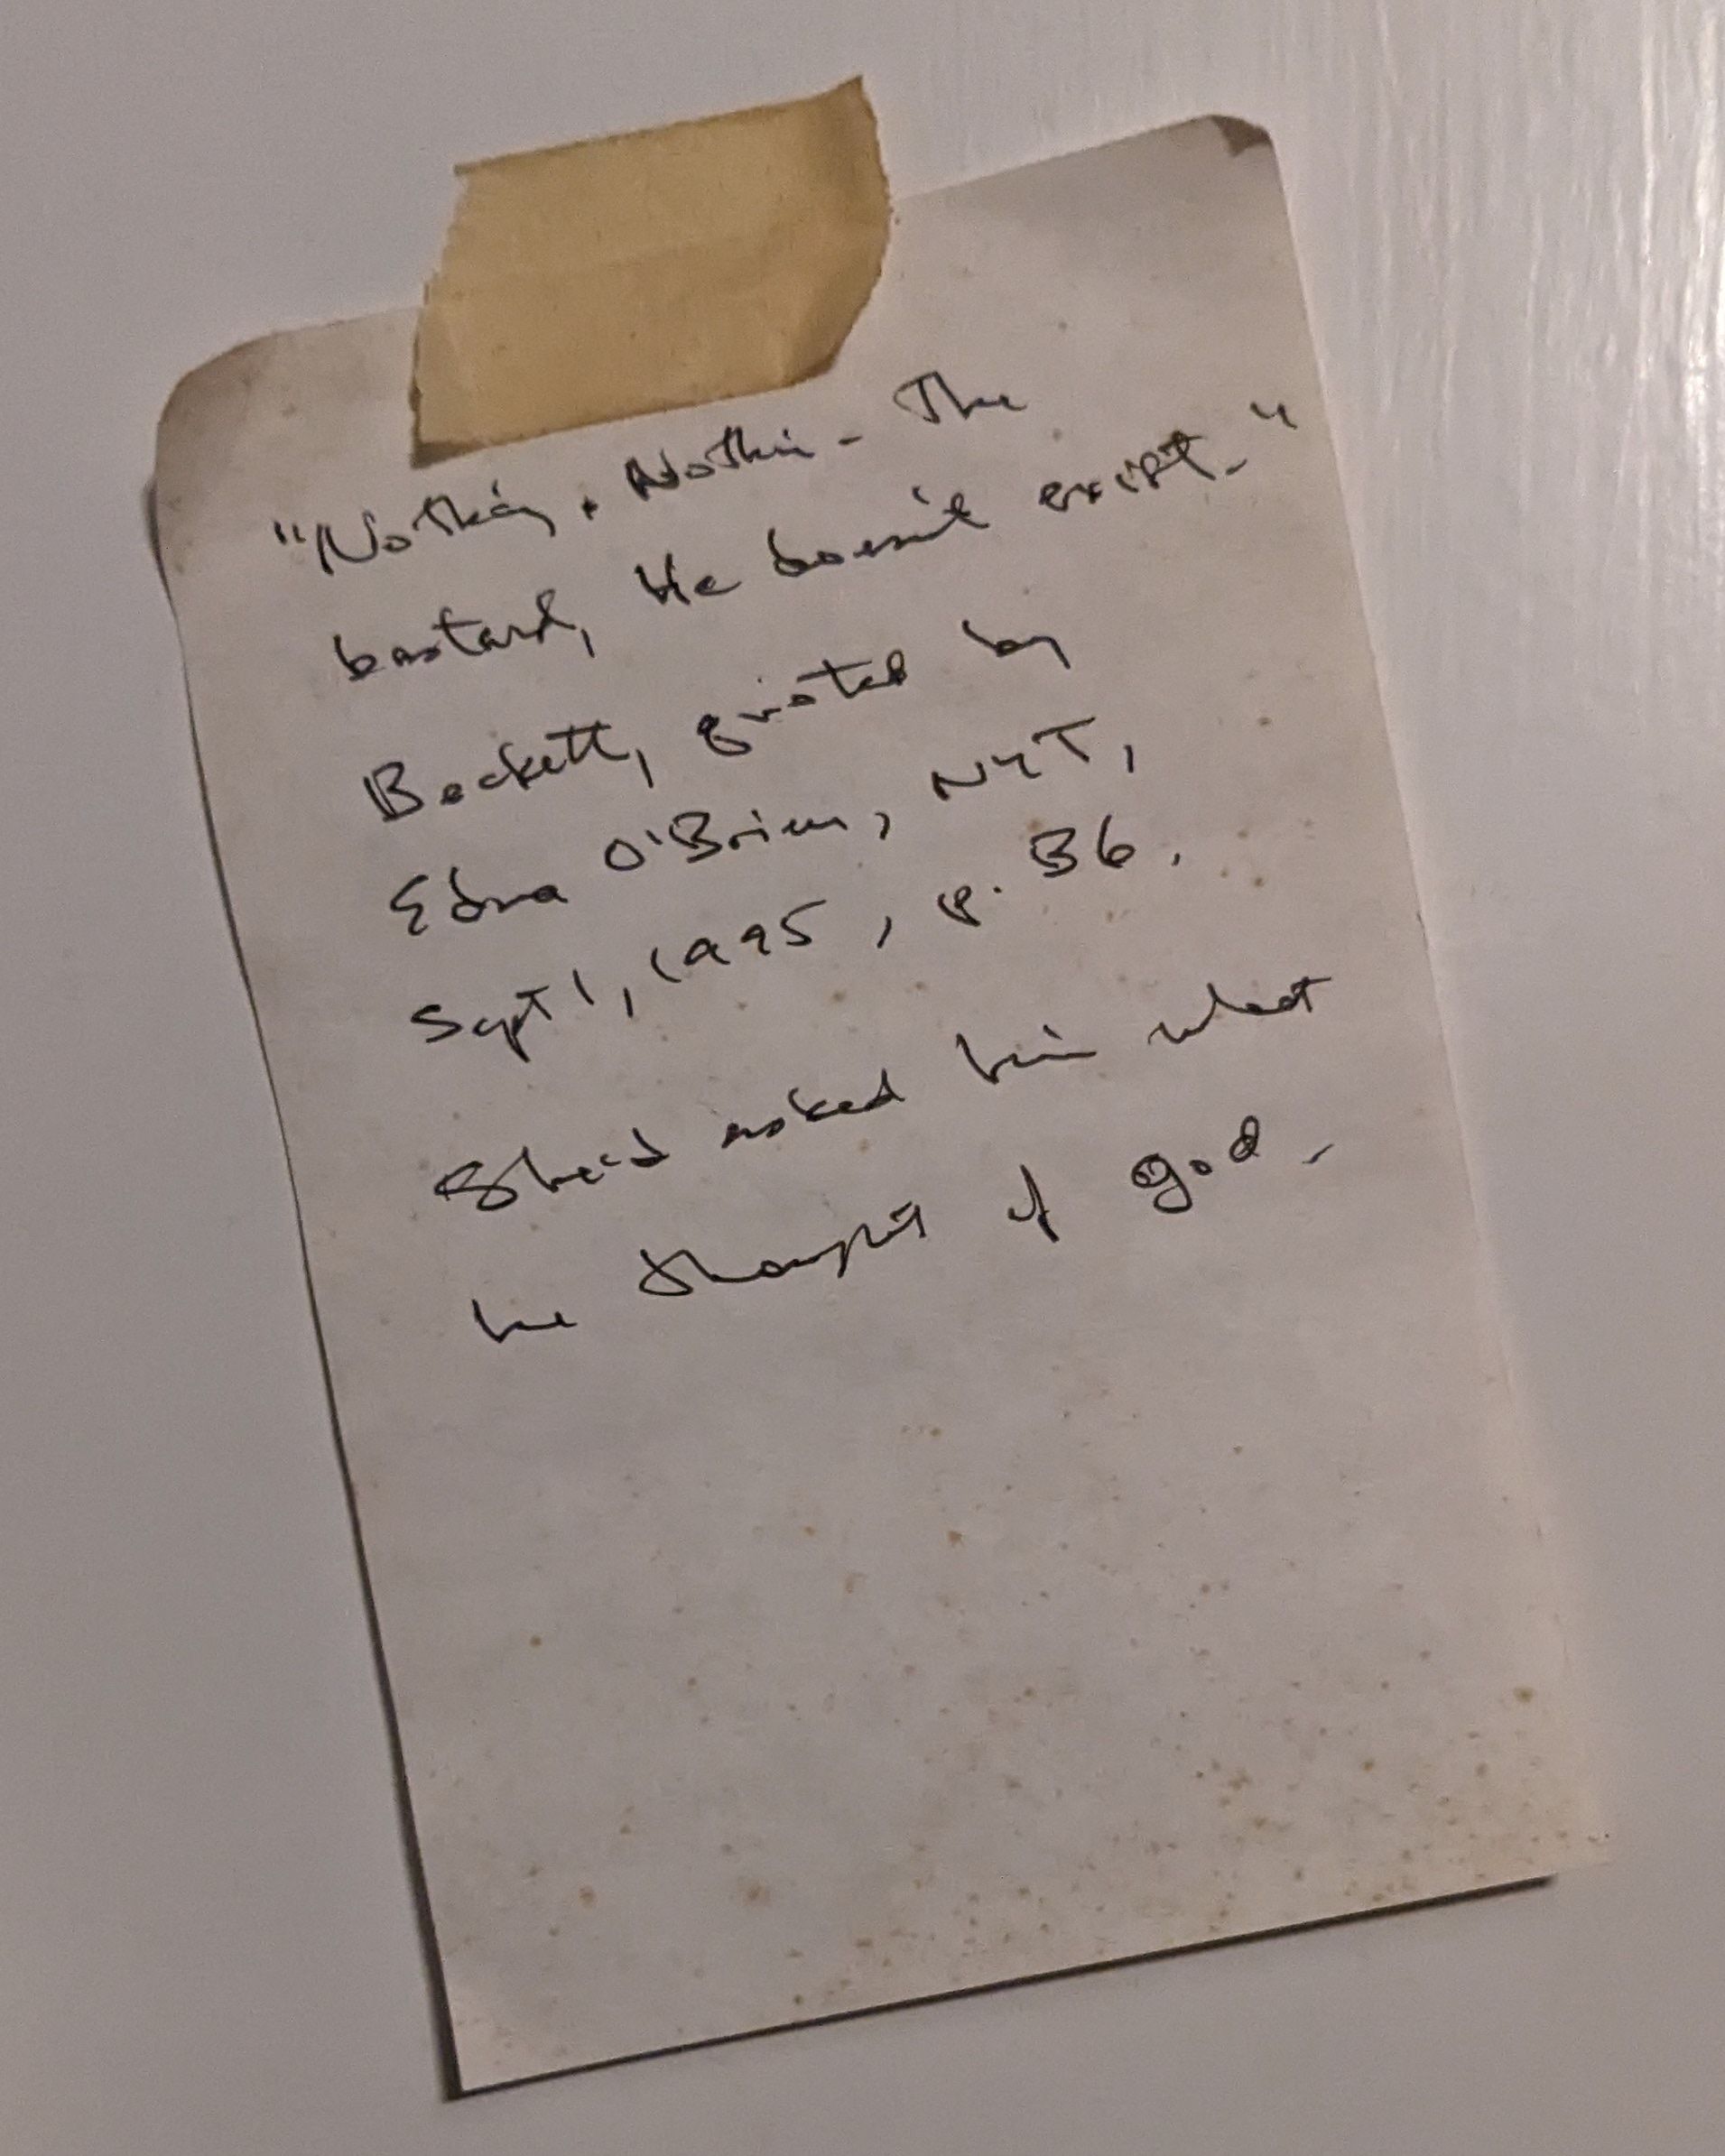 "Nothing. Nothin- The
bastard, He doesn't exist."
Beckett, quoted by
Edna O'Brien, NYT,
Sept 1, 1995, p. B6.
She'd asked him what
he thought of god.